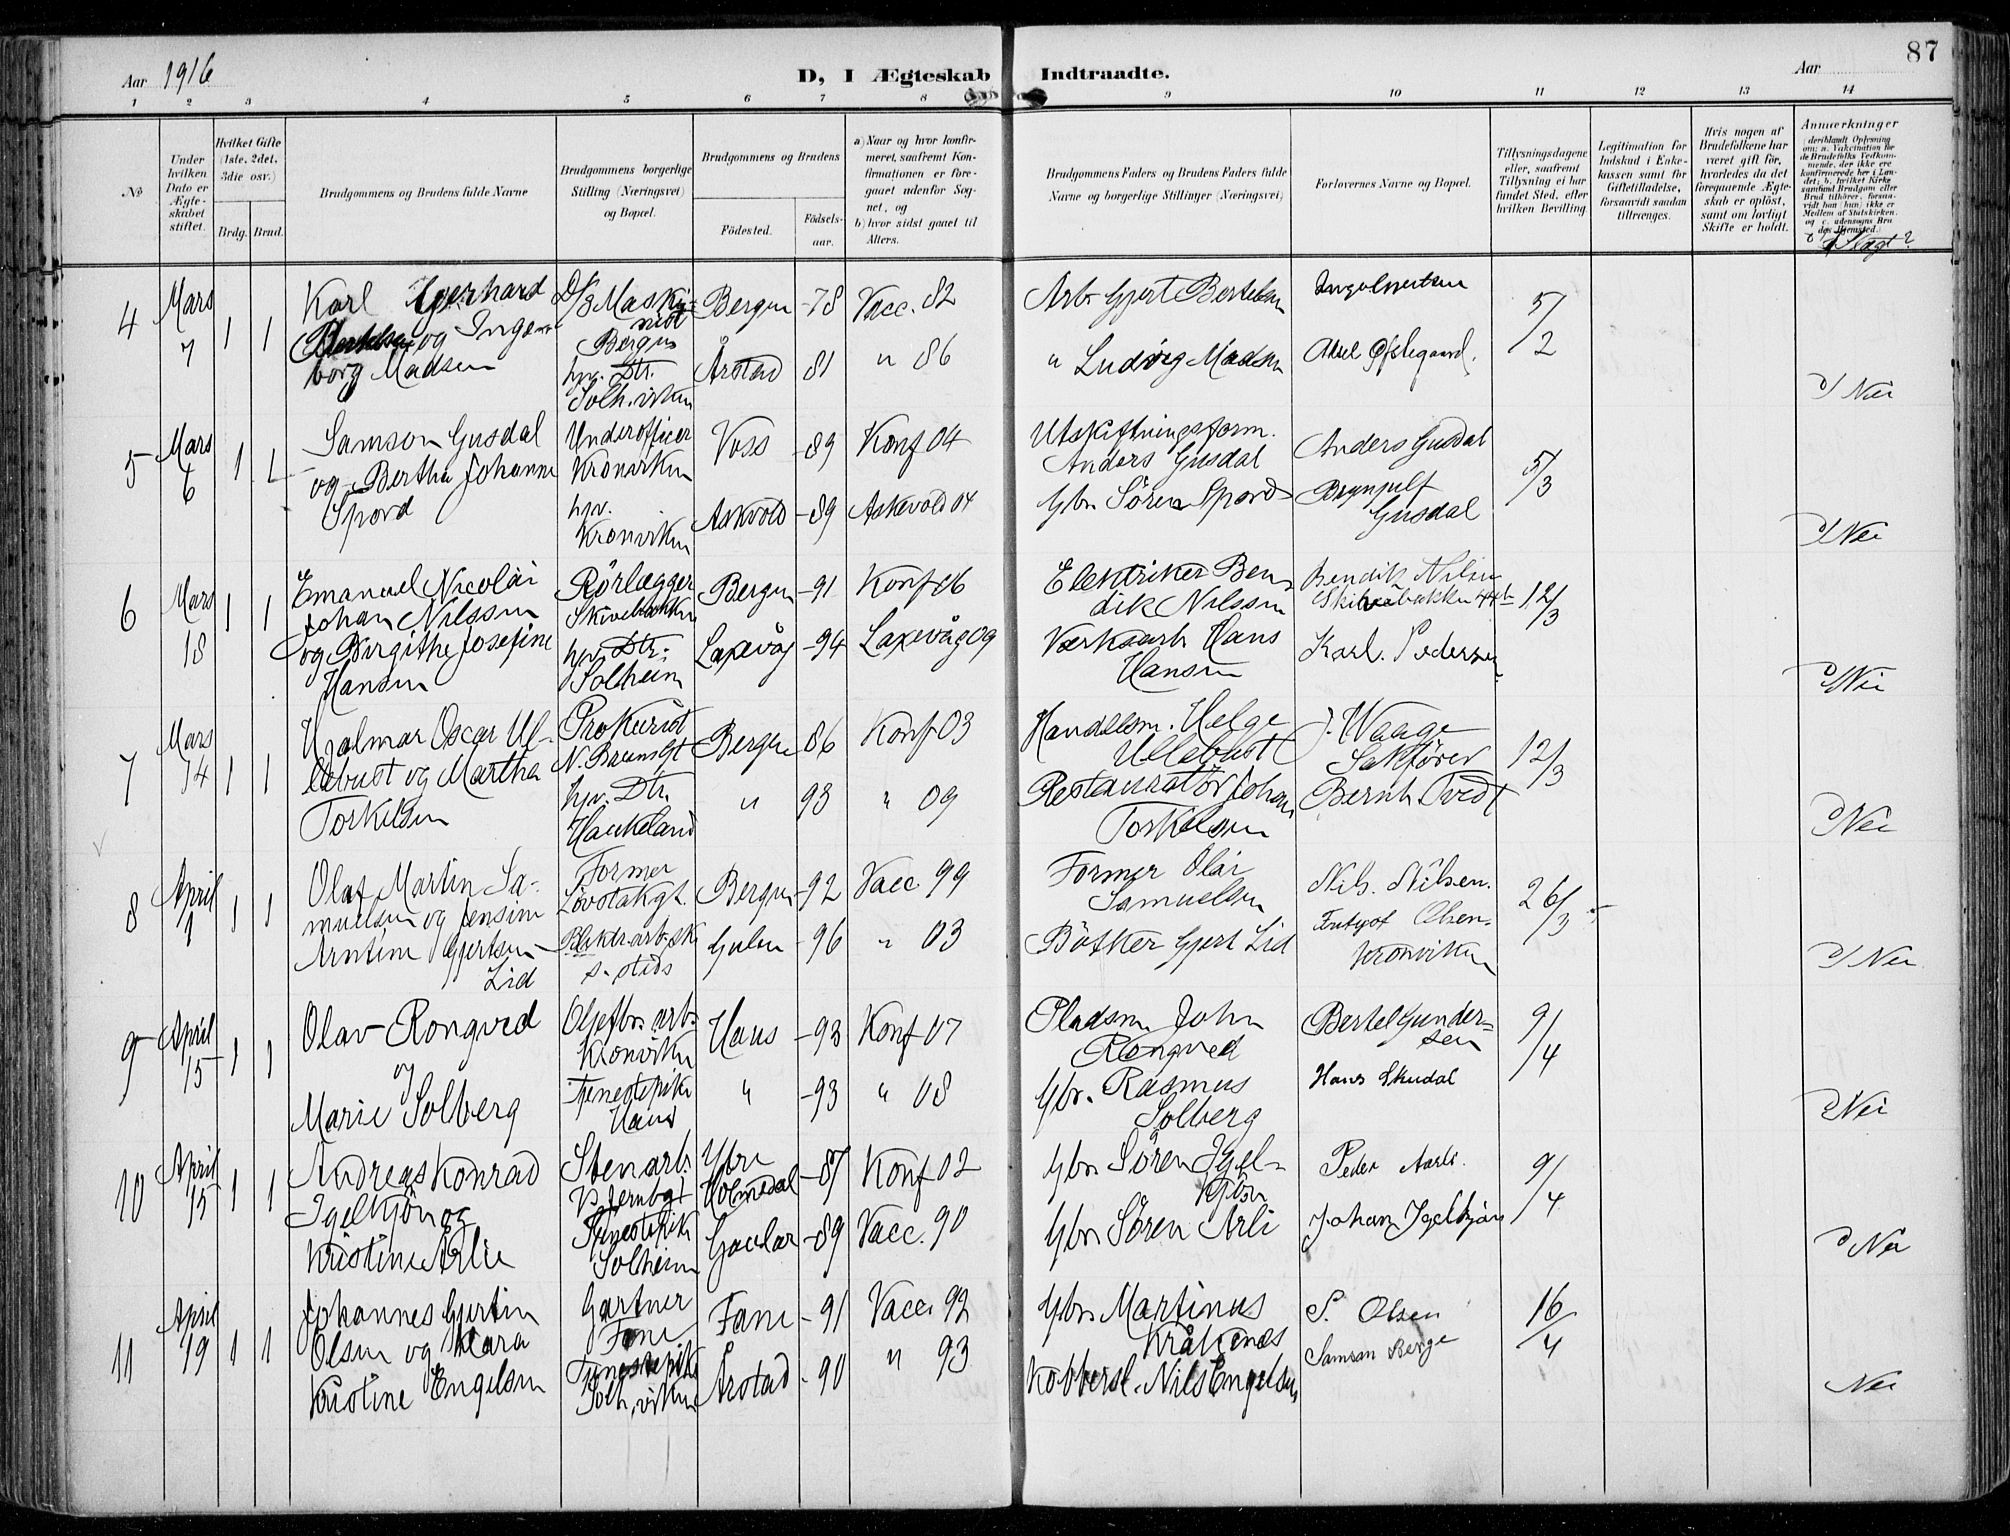 Aar 1916
D, I Ægteskab Indtraadte.
Aar
87
1 2 3 4 5 6 7 8 9 10 11 12 13 14
No
Under hvilken Dato er Ægteskabet stiftet.
Hvilket Gifte (1ste, 2det, 3die osv.)
Brdg. Brud.
Brudgommens og Brudens fulde Navne
Brudgommens borgerlige Stilling (Næringsvei) og Bopæl.
Brudgommens og Brudens
Fødested.
Fødselsaar.
a) Naar og hvor konfirmeret, saafremt Konfirmationen er foregaaet udenfor Sognet, og
b) hvor sidst gaaet til Alters.
Brudgommens Faders og Brudens Faders fulde Navne og borgerlige Stillinger (Næringsvei)
Forlovernes Navne og Bopæl.
Tillysningsdagene eller, saafremt Tillysning ei har fundet Sted, efter hvilken Bevilling.
Legitimation for Indskud i Enkekassen samt for Giftetilladelse, forsaavidt saadan tiltrænges.
Hvis nogen af Brudefolkene har været gift før, hvorledes da det foregaaende Ægteskab er opløst, samt om lovligt Skifte er holdt.
Anmærkninger
(deriblandt Oplysning om: a. Vakcination for de Brudefolks Vedkommende, der ikke ere konfirmerede her i Landet; b. hvilket Kirkesamfund Brudgom eller Brud tilhører, forsaavidt han (hun) ikke er Medlem af Statskirken, og c. udensogns Brudes Hjemsted.)
Slægt?
4 Mars 7 1 1
Karl Gerhard
Bertelsen og Inge-
borg Madsen
D/S Maski-
nist
Bergen
hjv. Dtr.
Solh.viken
Bergen -78 Vacc. 82
Årstad 81 " 86
Arb. Gjert Bertelsen
" Ludvig Madsen
Aksel Østegaard.
5/2
Nei
5 Mars 6 1 1
Samson Gusdal
og Bertha Johanne
Spord
Underofficer
Kronviken
hjv.
Kronviken
Voss -89 Konf 04
Askvold -89 Askevold 04
Utskiftningsform.
Anders Gusdal
Gbr. Sören Spord
Anders Gusdal
Brynjulf
Gusdal
5/3
Nei
6 Mars 18 1 1
Emanuel Nicolai
Johan Nilssen
og Birgithe Josefine
Hansen
Rörlægger
Skivebakken
hjv. Dtr.
Solheim
Bergen -91 Konf 06
Laxevåg -94 Laxevåg 09
Elektriker Ben-
dik Nilssen
Værksarb. Hans
Hansen
Bendik Nilsen
Skivebakken 44b
Karl. Pedersen
12/3
Nei
7 Mars 14 1 1
Hjalmar Oscar Ul-
lebust og Martha
Torkilsen
Prokurist
hjv. Dtr.
Haukeland
Bergen 86 Konf 03
" 93 " 09
Handelsm. Helge
Ullebust
Restauratör Johan
Torkelsen
J. Waage
Sakförer
Bernh. Tvedt
12/3
Nei
8 April 1 1 1
Olaf Martin Sa-
muelsen og Jensine
Arntine Gjertsen
Lid
Former
Lövstakgt.
s. steds
Bergen -92 Vacc 99
Gulen -96 " 03
Former Olai
Samuelsen
Bötker Gjert Lid
Nils. Nilsen.
Olsen
Kronviken
26/3
Nei
9 April 15 1 1
Olav Rongved
og
Marie Solberg
Oljefbr. arb.
Kronviken
Tjenestepike
Haus
Haus -93 Konf 07
" -93 " 08
Pladsm John
Rongved
Gbr. Rasmus
Solberg
Bertel Gunder-
sen
Hans Skudal
9/4
Nei
10 April 15 1 1
Andreas Konrad
Igelkjön og
Kristine Arlie
Stenarb.
Tjenestepike
Solheim
Ytre
Holmedal -87 Konf 02
Gaular -89 Vacc. 90
Gbr. Sören Igel-
kjön
Gbr Sören Arli
Peder Aarli.
Johan Igelkjön
9/4
Nei
11 April 19 1 1
Johannes Gjertin
Olsen og Klara
Kristine Engelsen
Gartner
Fane
Tjenestepike
Solh.viken
Fane -91 Vacc. 92
Årstad -90 " 93
Gbr Martinus
Kråkenæs
Kobbersl. Nils Engelsen
S. Olsen
Samson Berge
16/4
Nei